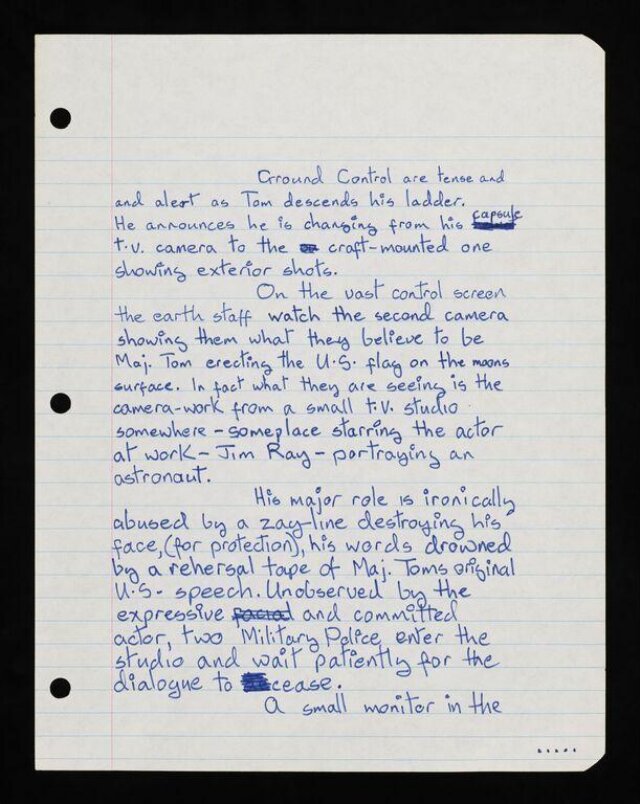 Ground Control are tense and
and alert as Tom descends his ladder.
He announces he is changing from his capsule
t.v. camera to the craft-mounted one
showing exterior shots.
On the vast control screen
the earth staff watch the second camera
showing them what they believe to be
Maj. Tom erecting the U.S. flag on the moons
surface. In fact what they are seeing is the
camera-work from a small t.v. studio
somewhere - someplace starring the actor
at work - Jim Ray - portraying an
astronaut.
His major role is ironically
abused by a zag-line destroying his
face, (for protection), his words drowned
by a rehersal tape of Maj. Toms original
U.S. speech. Unobserved by the
expressive facial and committed
actor, two Military Police enter the
studio and wait patiently for the
dialogue to cease.
A small monitor in the